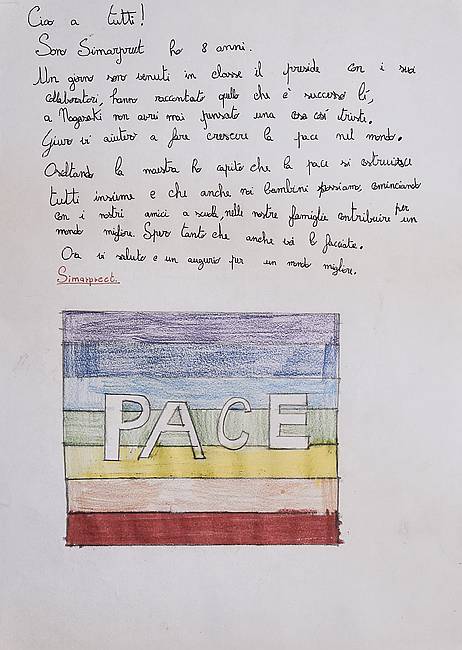 Ciao a tutti!
Sono Simarpreet ho 8 anni.
Un giorno sono venuti in classe il preside con i suoi
collaboratori, hanno raccontato quello che è successo lì,
a Nagasaki non avrei mai pensato una cosa così triste.
Giuro vi aiuterò a fare crescere la pace nel mondo.
Ascoltando la maestra ho capito che la pace si costruisce
tutti insieme e che anche noi bambini possiamo, cominciando
con i nostri amici a scuola, nelle nostre famiglie contribuire per un
mondo migliore. Spero tanto che anche voi lo facciate.
Ora vi saluto e un augurio per un mondo migliore.
Simarpreet.
PACE